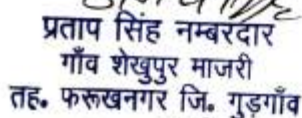 प्रताप सिंह नम्बरदार
गाँव शेखुपुर माजरी
तह॰ फरूखनगर जि॰ गुड़गाँव